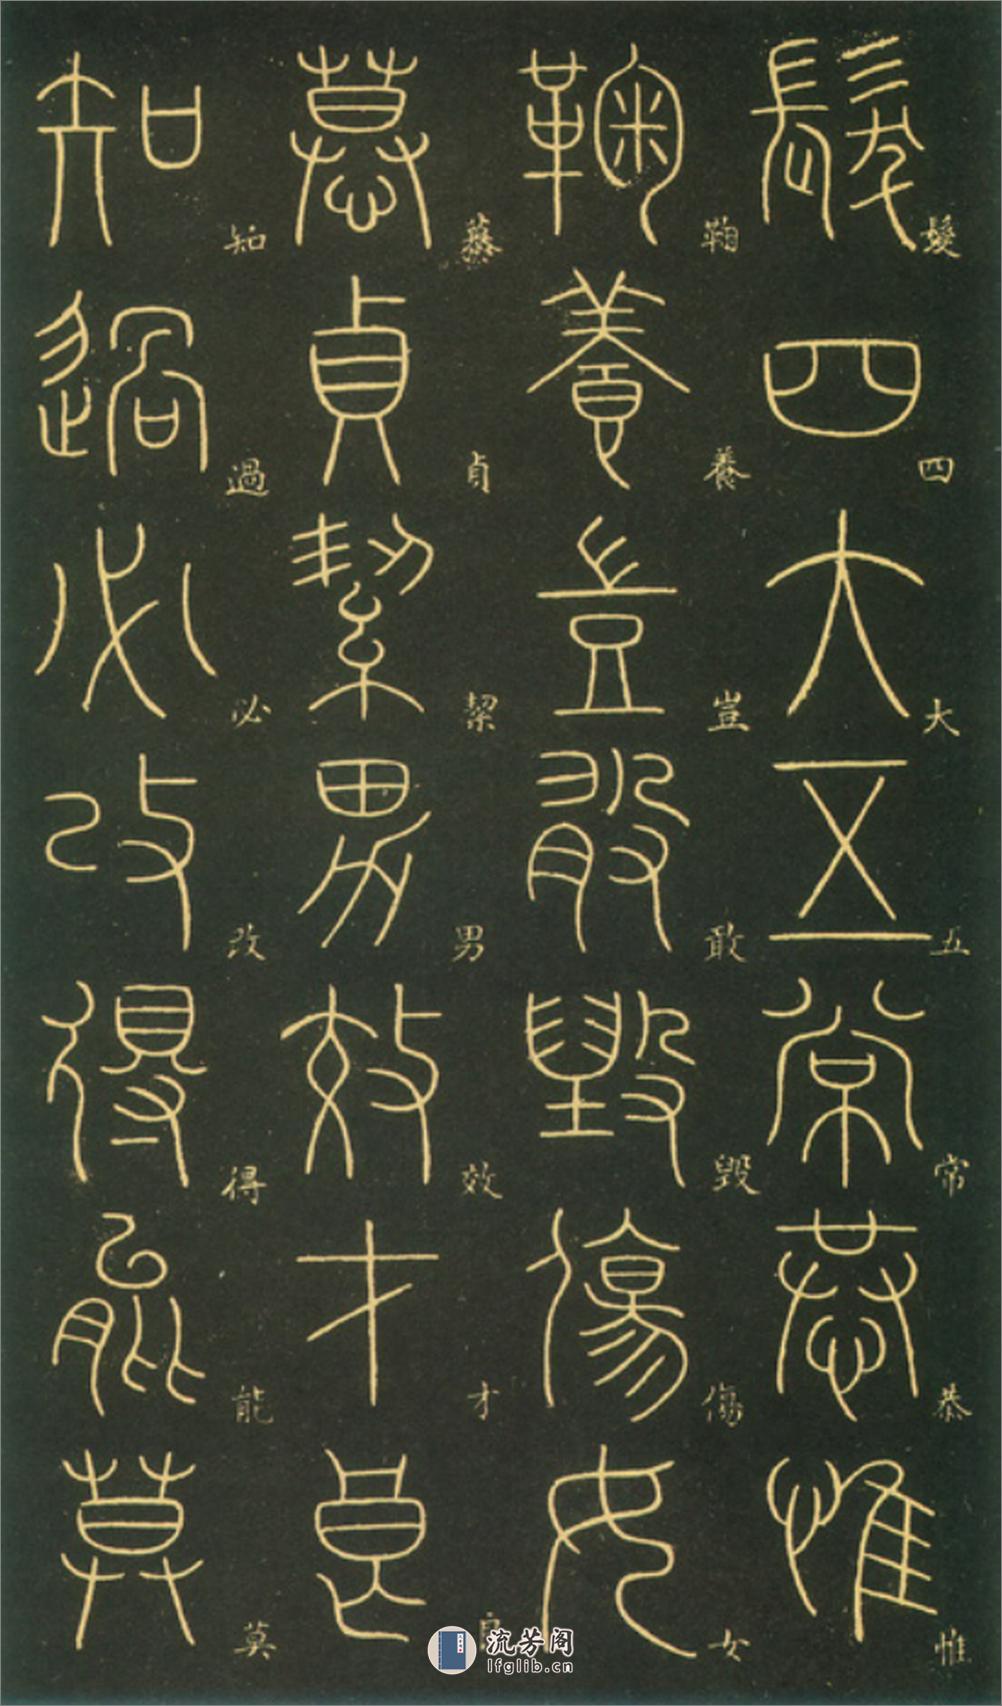 髮四大五常恭惟
鞠養豈敢毀傷女
慕貞絜男效才良
知過必改得能莫
流芳阁
lfglib.cn